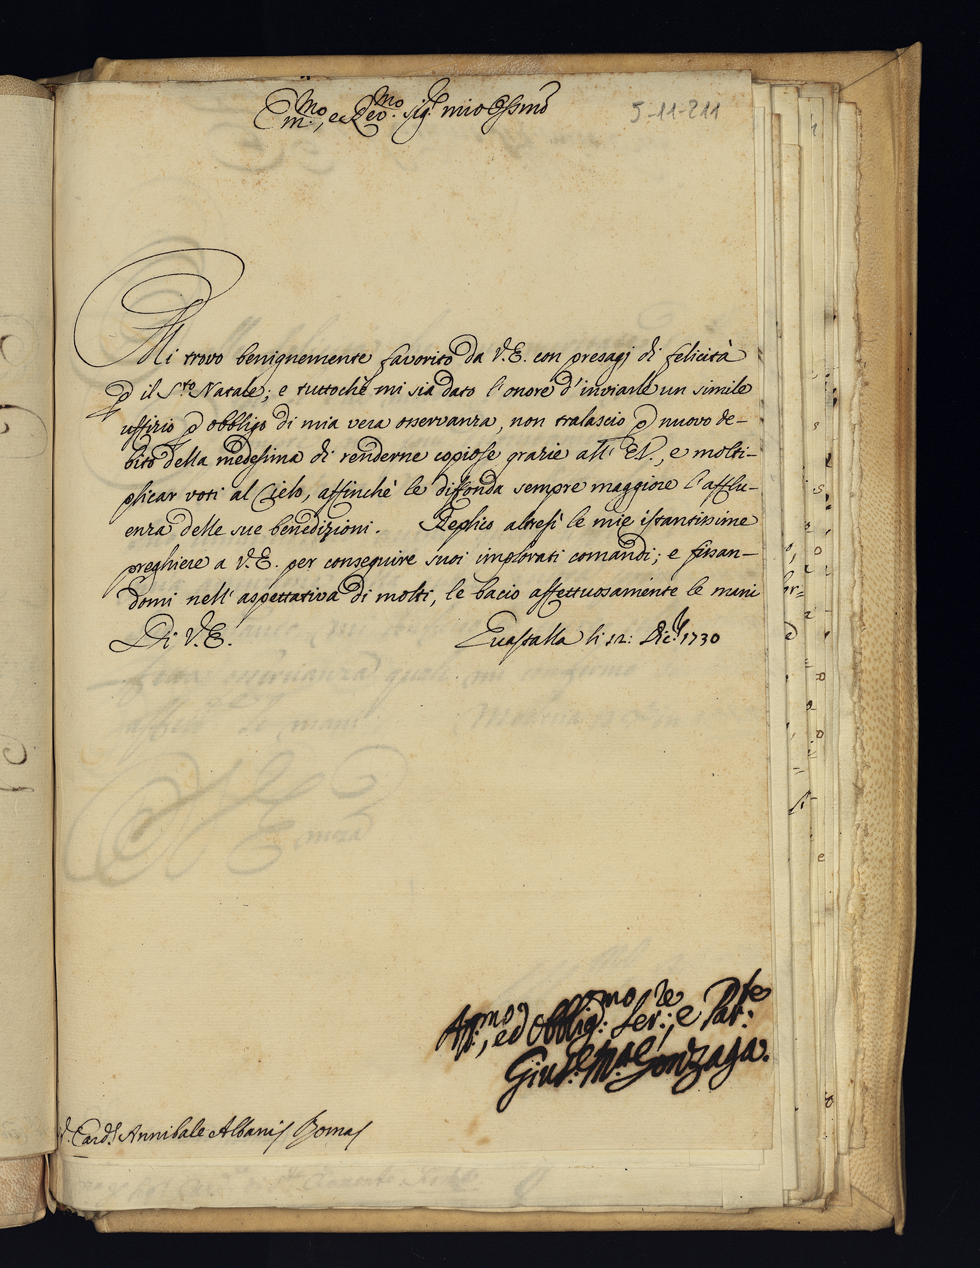 Em.mo, e Rev.mo Sig.r mio Oss.mo
5-11-211
Mi trovo benignemente favorito da V.E. con presagj di felicità
p il S.to Natale; e tuttochè mi sia dato l'onore d'inviarle un simile
uffizio p obbligo di mia vera osservanza, non tralascio p nuovo de-
bito della medesima di renderne copiose grazie all' E.V., e molti-
plicar voti al Cielo, affinchè le diffonda sempre maggiore l'afflu-
enza delle sue benedizioni. Replico altresì le mie istantissime
preghiere a V.E. per conseguire suoi implorati comandi; e fissan-
domi nell'aspettativa di molti, le bacio affettuosamente le mani
Di V.E. Guastalla li 12: Dic.re 1730
Aff.mo, ed Obblig.mo Ser.re, e Par.te
Gius.e M.a Gonzaga.
Card.l Annibale Albani Roma